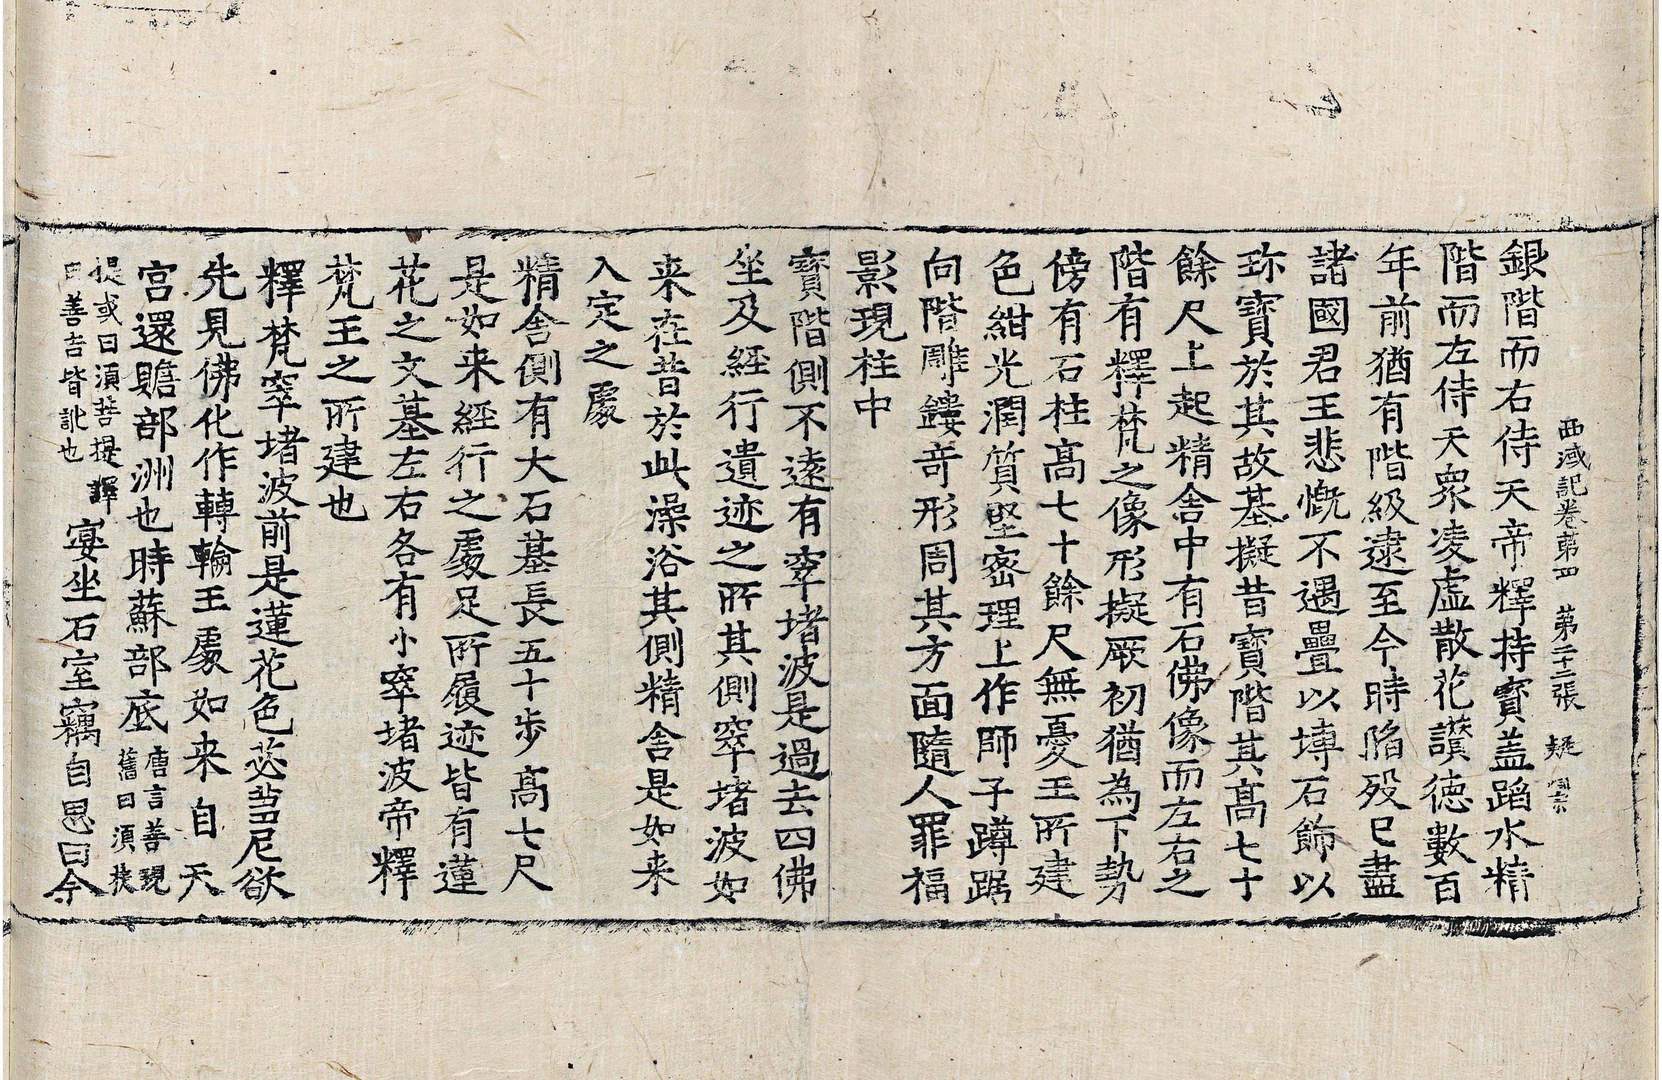 西域記卷第四　第二十二張　疑
銀階而右侍天帝釋持寶盖蹈水精
階而左侍天衆凌虛散花讃德數百
年前猶有階級逮至今時陷歿已盡
諸國君王悲慨不遇疊以塼石飾以
珎寶於其故基擬昔寶階其髙七十
餘尺上起精舎中有石佛像而左右之
階有釋梵之像形擬厥初猶為下勢
傍有石柱髙七十餘尺無憂王所建
色紺光潤質堅密理上作師子蹲踞
向階雕鏤竒形周其方面隨人罪福
影現柱中
寳階側不遠有窣堵波是過去四佛
坐及經行遺迹之所其側窣堵波如
来在昔於此澡浴其側精舎是如来
入定之處
精舎側有大石基長五十步髙七尺
是如来經行之處足所履迹皆有蓮
花之文基左右各有小窣堵波帝釋
梵王之所建也
釋梵窣堵波前是蓮花色苾芻尼欲
先見佛化作轉輪王處如来自天
宫還贍部洲也時蘇部底唐言善現舊曰湏扶
提或曰湏菩提譯曰善吉皆訛也宴坐石室竊自思曰今